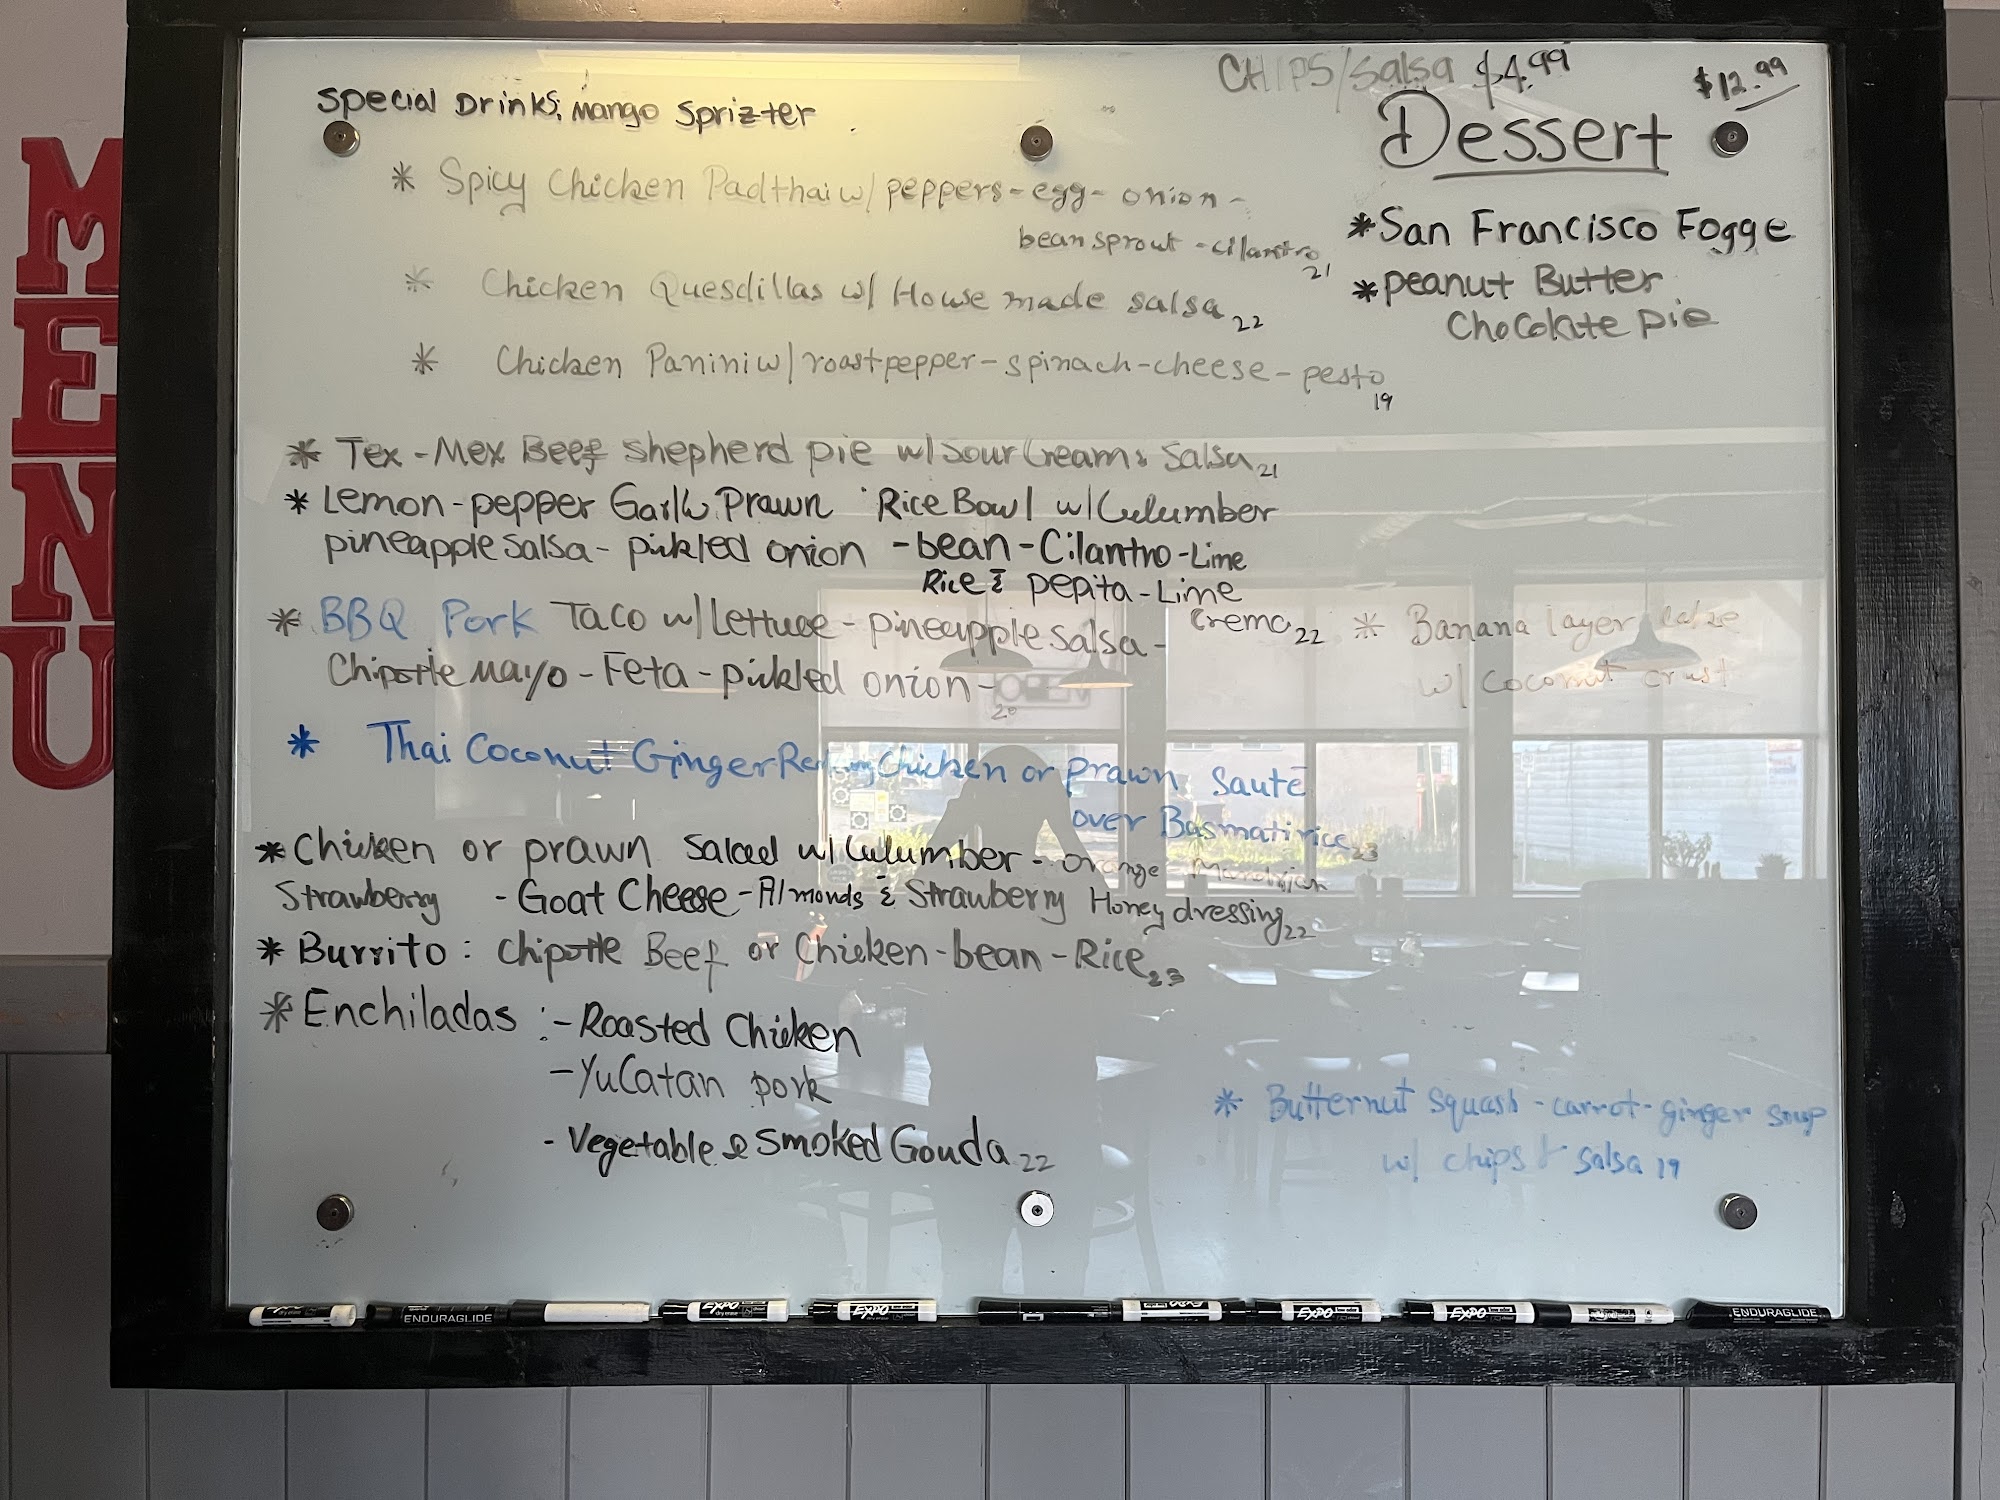 MENU
CHIPS/Salsa $4.99
$12.99
Special Drinks: Mango Sprizter
Dessert
* Spicy Chicken Padthai w/ peppers - egg - onion -
beansprout - cilantro
21
* San Francisco Fogge
* Peanut Butter
Chocolate pie
* Chicken Quesdillas w/ House made salsa 22
* Chicken Panini w/ roast pepper - spinach - cheese - pesto
19
* Tex-Mex Beef Shepherd pie w/ Sour Cream & Salsa 21
* Lemon-pepper Garlic Prawn Rice Bowl w/ Cucumber
pineapple salsa - pickled onion - bean - Cilantro - Lime
Rice & pepita - Lime
Crema 22
* BBQ Pork Taco w/ Lettuce - pineapple salsa -
Chipotle Mayo - Feta - pickled onion -
20
* Banana layer cake
w/ Coconut crust
* Thai Coconut Ginger Red Chicken or prawn Sauté
over Basmati rice 23
* Chicken or prawn Salad w/ Cucumber - orange - Mandarian
Strawberry - Goat Cheese - Almonds & Strawberry Honey dressing 22
* Burrito: Chipotle Beef or Chicken - bean - Rice 23
* Enchiladas : - Roasted Chicken
- Yucatan pork
- Vegetable & Smoked Gouda 22
* Butternut squash - carrot - ginger soup
w/ chips & salsa 19
EXPO
ENDURAGLIDE
EXPO
EXPO
EXPO
EXPO
ENDURAGLIDE